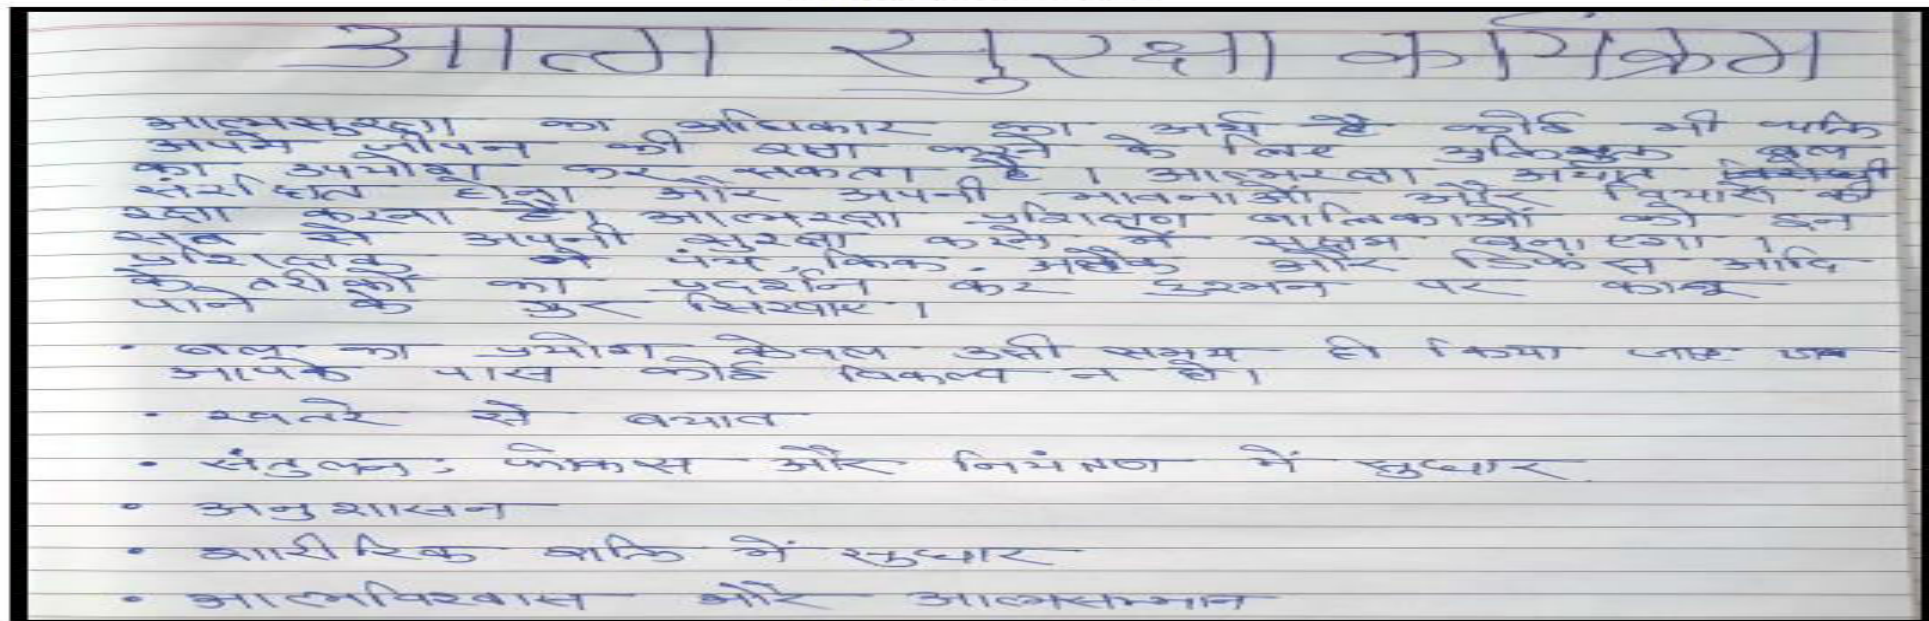 आत्म सुरक्षा कार्यक्रम
आत्मसुरक्षा का अधिकार का अर्थ है कोई भी व्यक्ति
अपने जीवन की रक्षा करने के लिए युक्तियुक्त बल
का उपयोग कर सकता है । आत्मरक्षा अर्थात
संरक्षित होना और अपनी भावनाओं और विचारों की
रक्षा करना है। आत्मरक्षा प्रशिक्षण बालिकाओं को इन
सब से अपनी सुरक्षा करने में सक्षम बनाएगा ।
प्रशिक्षक ने पंच, किक, अटैक और डिफेंस आदि
के तरीकों का प्रदर्शन कर दुश्मन पर काबू
पाने के गुर सिखाए ।
• बल का प्रयोग केवल उसी समय ही किया जाए जब
आपके पास कोई विकल्प न हो।
• खतरे से बचाव
• संतुलन, फोकस और नियंत्रण में सुधार
• अनुशासन
• शारीरिक शक्ति में सुधार
• आत्मविश्वास और आत्मसम्मान